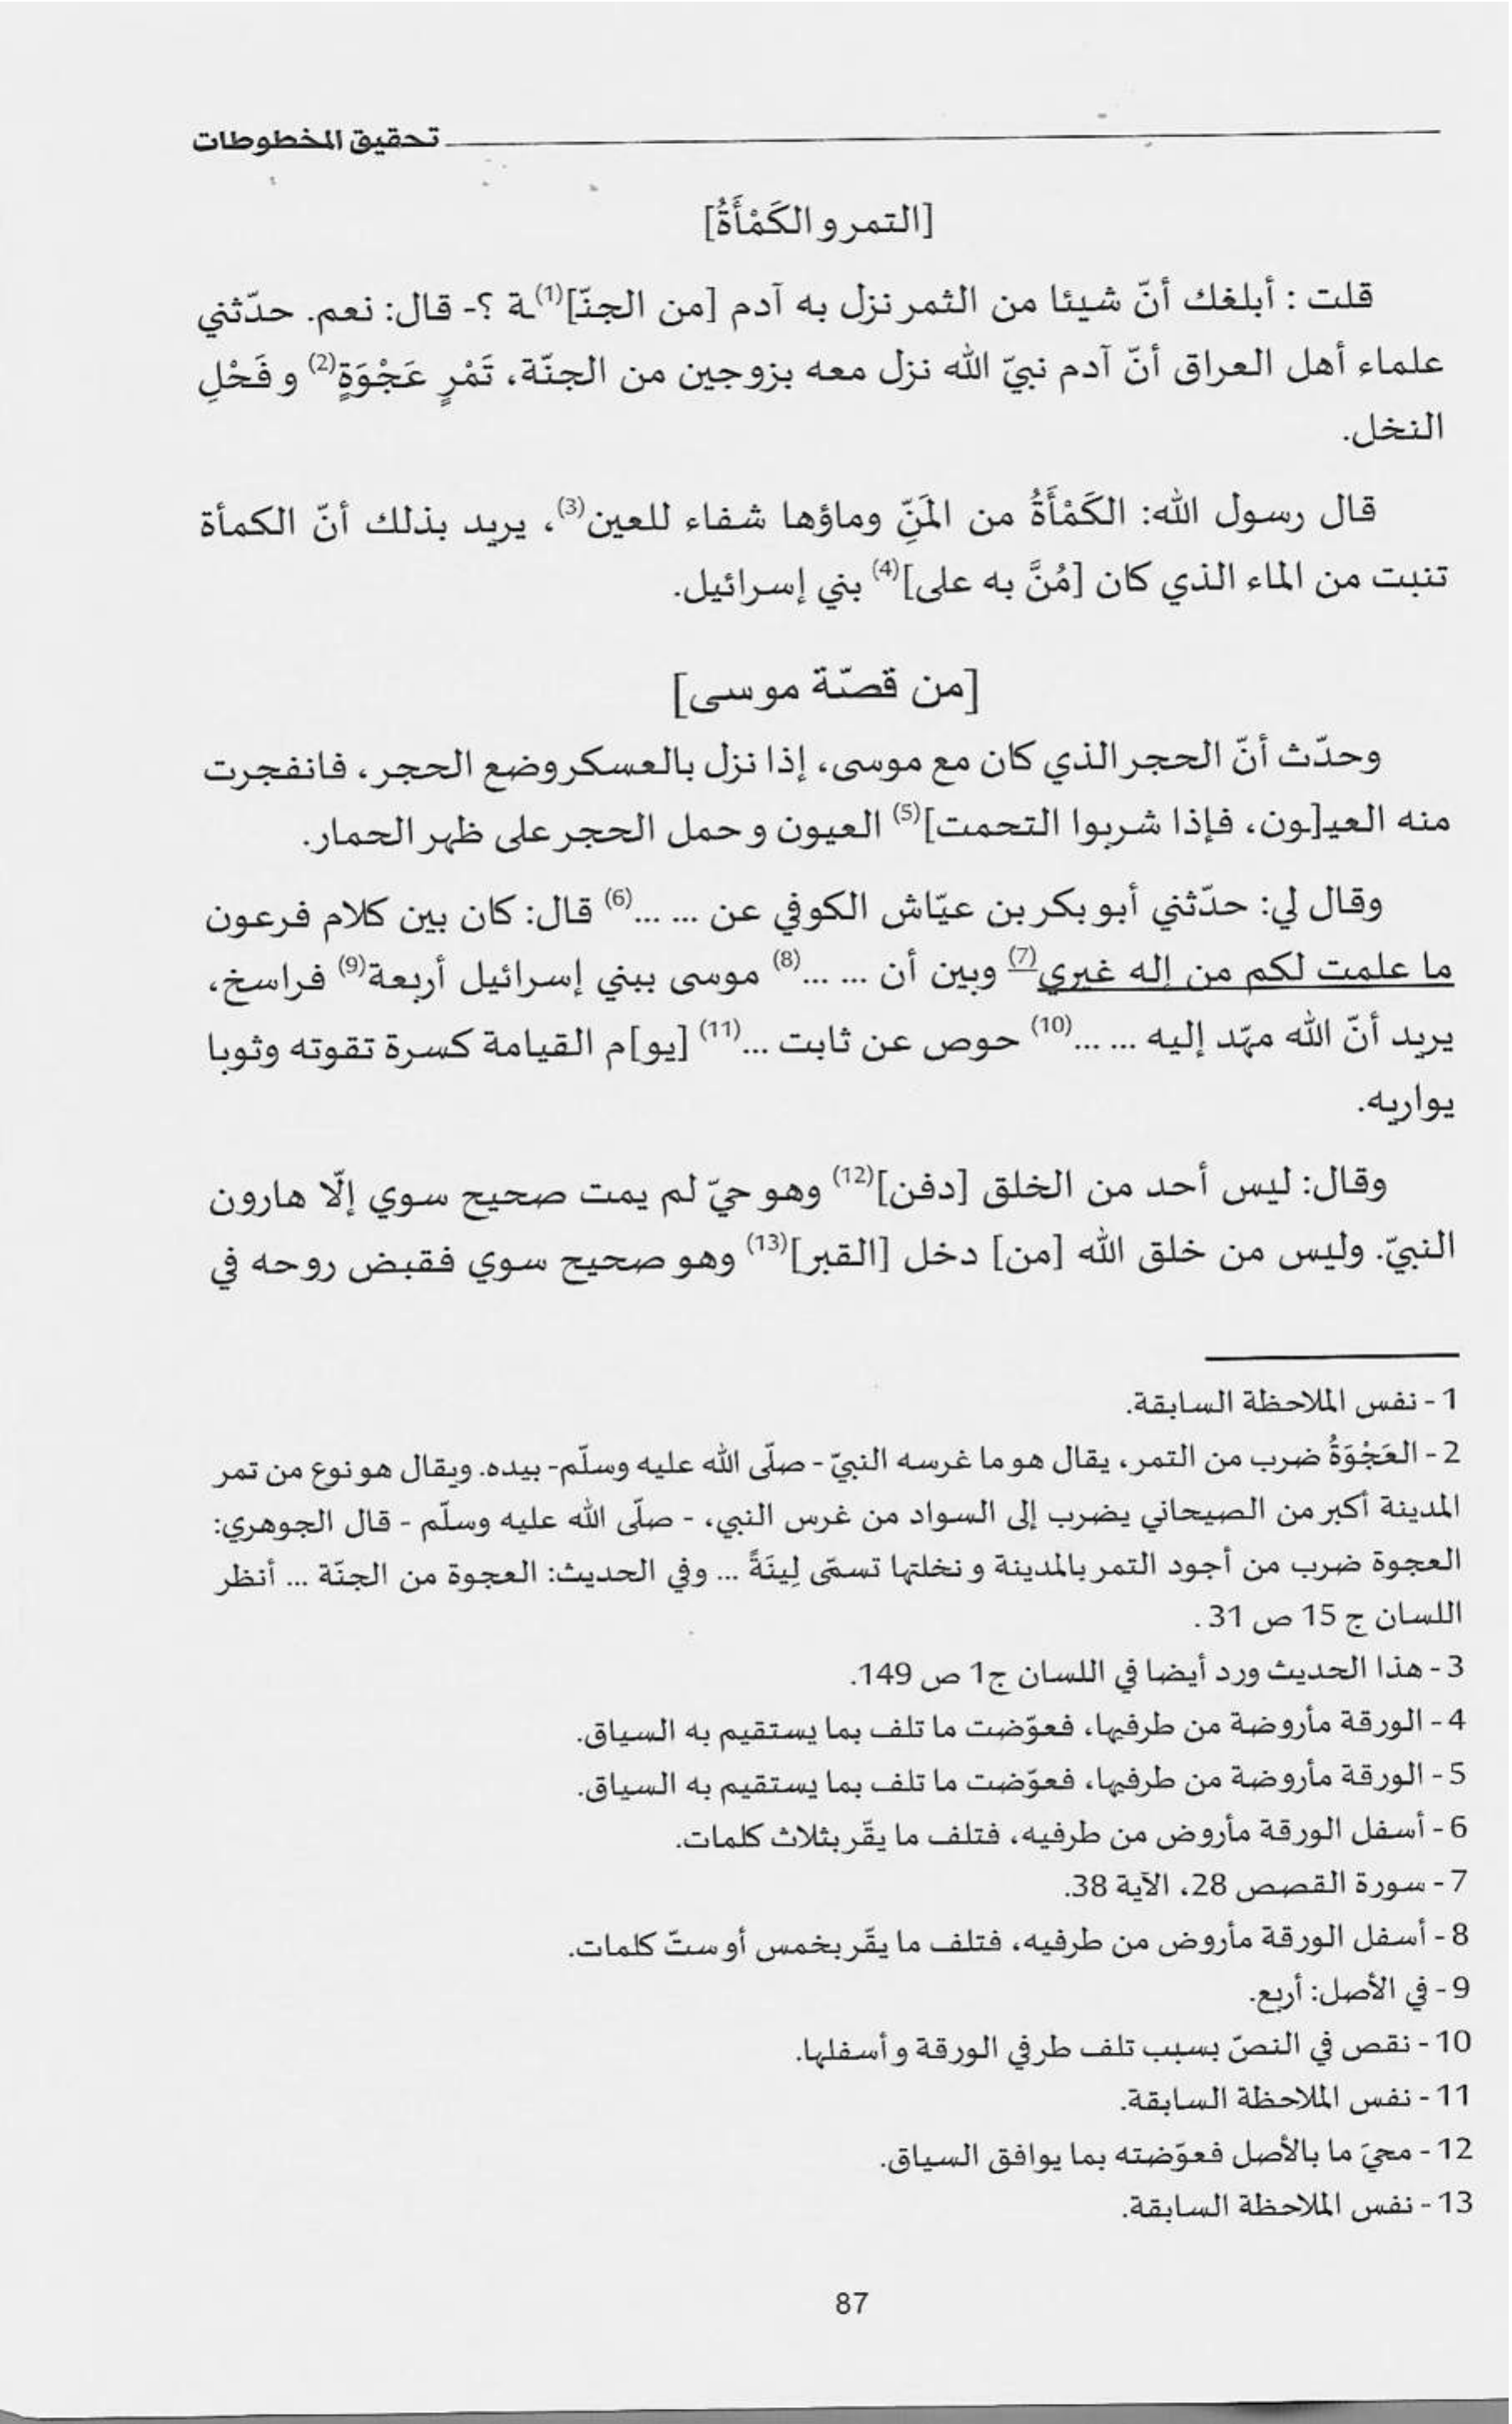 تحقيق المخطوطات
[التمر و الكَمْأَةُ]
قلت : أبلغك أنّ شيئا من الثمر نزل به آدم [من الجنّ](1)ـة ؟- قال: نعم. حدّثني
علماء أهل العراق أنّ آدم نبيّ الله نزل معه بزوجين من الجنّة، تَمْرٍ عَجْوَةٍ(2) و فَحْلِ
النخل.
قال رسول الله: الكَمْأَةُ من المَنِّ وماؤها شفاء للعين(3)، يريد بذلك أنّ الكمأة
تنبت من الماء الذي كان [مُنَّ به على](4) بني إسرائيل.
[من قصّة موسى]
وحدّث أنّ الحجر الذي كان مع موسى، إذا نزل بالعسكر وضع الحجر، فانفجرت
منه العيـ[ـون، فإذا شربوا التحمت](5) العيون و حمل الحجر على ظهر الحمار.
وقال لي: حدّثني أبو بكر بن عيّاش الكوفي عن ... ...(6) قال: كان بين كلام فرعون
ما علمت لكم من إله غيري(7) وبين أن ... ...(8) موسى ببني إسرائيل أربعة(9) فراسخ،
يريد أنّ الله مهّد إليه ... ...(10) حوص عن ثابت ...(11) [يو]م القيامة كسرة تقوته وثوبا
يواريه.
وقال: ليس أحد من الخلق [دفن](12) وهو حيّ لم يمت صحيح سوي إلّا هارون
النبيّ. وليس من خلق الله [من] دخل [القبر](13) وهو صحيح سوي فقبض روحه في
1 - نفس الملاحظة السابقة.
2 - العَجْوَةُ ضرب من التمر، يقال هو ما غرسه النبيّ - صلّى الله عليه وسلّم- بيده. ويقال هو نوع من تمر
المدينة أكبر من الصيحاني يضرب إلى السواد من غرس النبي، - صلّى الله عليه وسلّم - قال الجوهري:
العجوة ضرب من أجود التمر بالمدينة و نخلتها تسمّى لِينَةً ... وفي الحديث: العجوة من الجنّة ... أنظر
اللسان ج 15 ص 31 .
3 - هذا الحديث ورد أيضا في اللسان ج1 ص 149.
4 - الورقة مأروضة من طرفيها، فعوّضت ما تلف بما يستقيم به السياق.
5 - الورقة مأروضة من طرفيها، فعوّضت ما تلف بما يستقيم به السياق.
6 - أسفل الورقة مأروض من طرفيه، فتلف ما يقّر بثلاث كلمات.
7 - سورة القصص 28، الآية 38.
8 - أسفل الورقة مأروض من طرفيه، فتلف ما يقّر بخمس أو ستّ كلمات.
9 - في الأصل: أربع.
10 - نقص في النصّ بسبب تلف طرفي الورقة و أسفلها.
11 - نفس الملاحظة السابقة.
12 - محيَ ما بالأصل فعوّضته بما يوافق السياق.
13 - نفس الملاحظة السابقة.
87